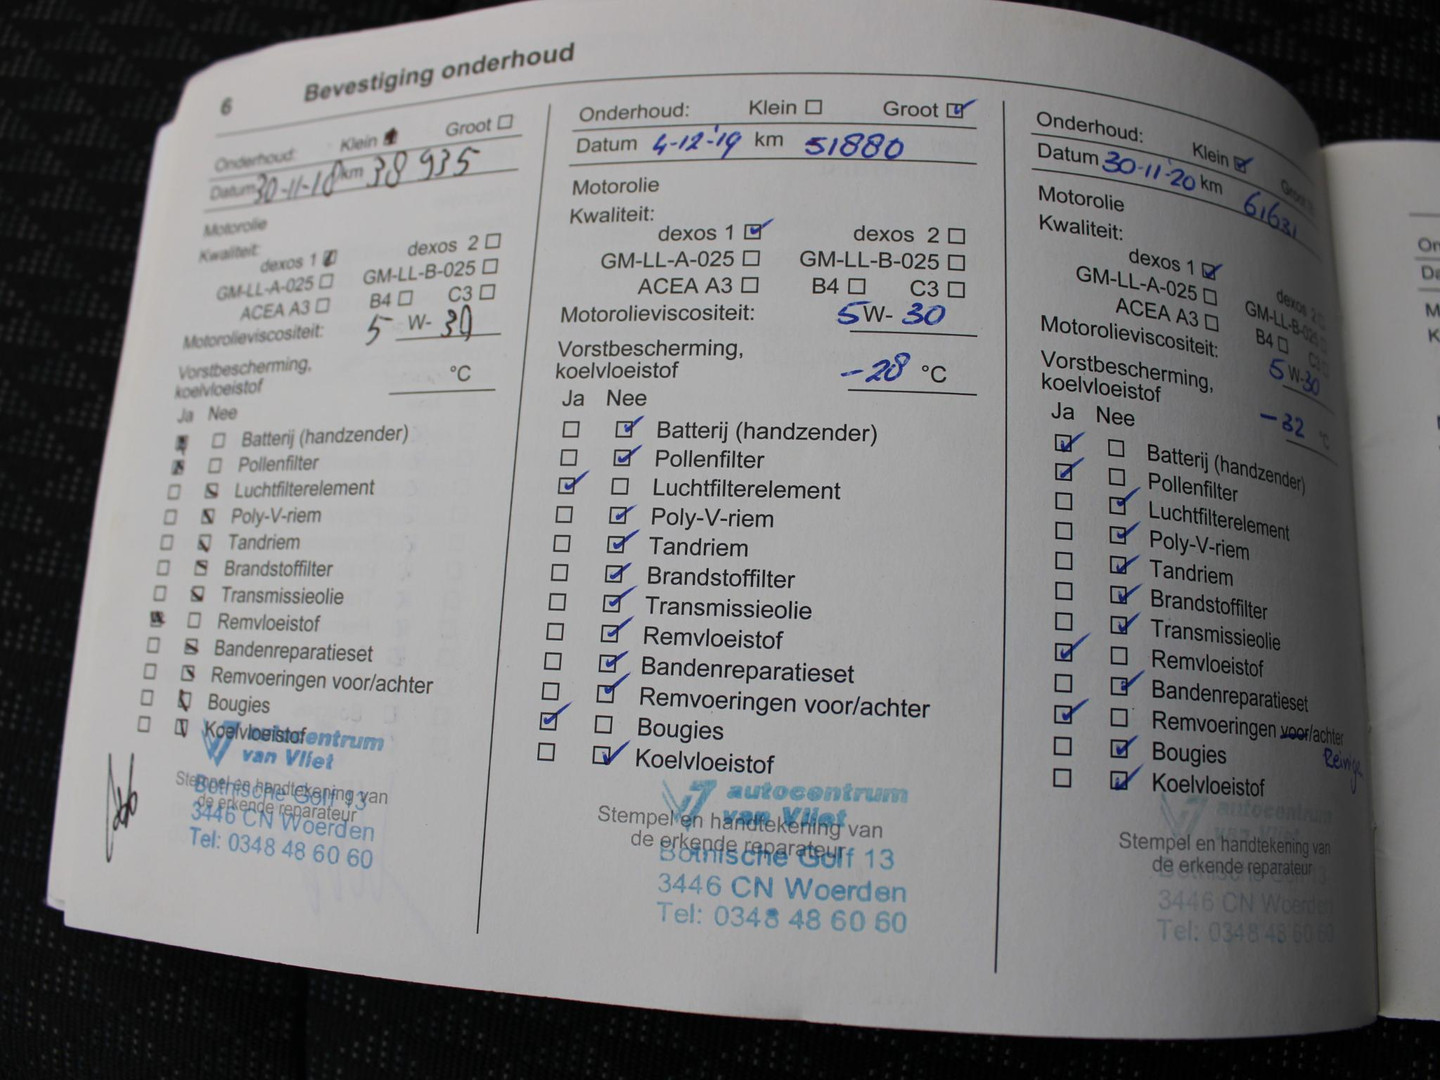 6 Bevestiging onderhoud
Onderhoud: Klein Groot
Datum 30-11-18 km 38935
Motorolie
Kwaliteit:
dexos 1 dexos 2
GM-LL-A-025 GM-LL-B-025
ACEA A3 B4 C3
Motorolieviscositeit: 5 W- 30
Vorstbescherming,
koelvloeistof °C
Ja Nee
Batterij (handzender)
Pollenfilter
Luchtfilterelement
Poly-V-riem
Tandriem
Brandstoffilter
Transmissieolie
Remvloeistof
Bandenreparatieset
Remvoeringen voor/achter
Bougies
Koelvloeistof
autocentrum
van Vliet
Stempel en handtekening van
de erkende reparateur
Bothische Golf 13
3446 CN Woerden
Tel: 0348 48 60 60
Onderhoud: Klein Groot
Datum 4-12-'19 km 51880
Motorolie
Kwaliteit:
dexos 1 dexos 2
GM-LL-A-025 GM-LL-B-025
ACEA A3 B4 C3
Motorolieviscositeit: 5 W- 30
Vorstbescherming,
koelvloeistof -28 °C
Ja Nee
Batterij (handzender)
Pollenfilter
Luchtfilterelement
Poly-V-riem
Tandriem
Brandstoffilter
Transmissieolie
Remvloeistof
Bandenreparatieset
Remvoeringen voor/achter
Bougies
Koelvloeistof
autocentrum
van Vliet
Stempel en handtekening van
de erkende reparateur
Bothische Golf 13
3446 CN Woerden
Tel: 0348 48 60 60
Onderhoud: Klein Groot
Datum 30-11-'20 km 61631
Motorolie
Kwaliteit:
dexos 1 dexos 2
GM-LL-A-025 GM-LL-B-025
ACEA A3 B4 C3
Motorolieviscositeit: 5 W- 30
Vorstbescherming,
koelvloeistof -32 °C
Ja Nee
Batterij (handzender)
Pollenfilter
Luchtfilterelement
Poly-V-riem
Tandriem
Brandstoffilter
Transmissieolie
Remvloeistof
Bandenreparatieset
Remvoeringen voor/achter
Bougies
Koelvloeistof
autocentrum
van Vliet
Stempel en handtekening van
de erkende reparateur
3446 CN Woerden
Tel: 0348 48 60 60